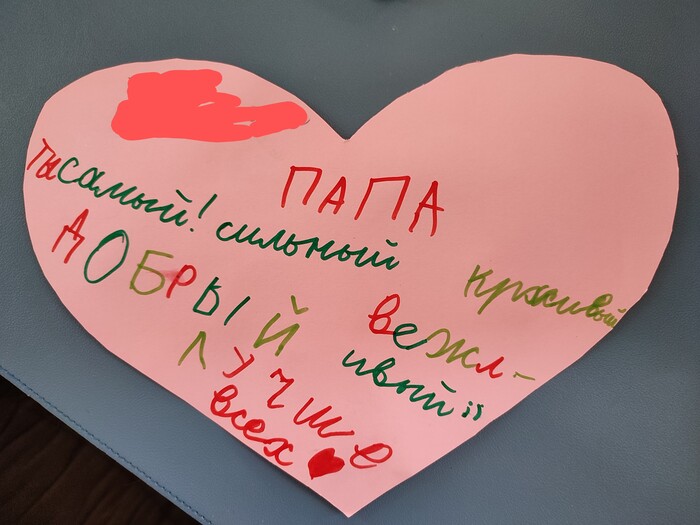 ПАПА
ты самый! сильный
ДОБРЫЙ
красивый
вежл-
ивый
ЛУЧШЕ
всех